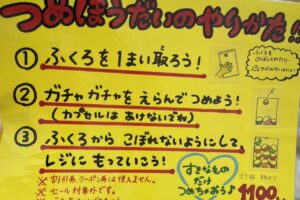 つめほうだいのやりかた!!
① ふくろを1まい取ろう!
② ガチャガチャをえらんでつめよう!
(カプセルは あけないでね)
③ ふくろから こぼれないようにして
レジに もっていこう!
※ 割引券、クーポン券は使えません。
※ セール対象外です。
すきなもの
だけ
つめちゃおう♪
1100